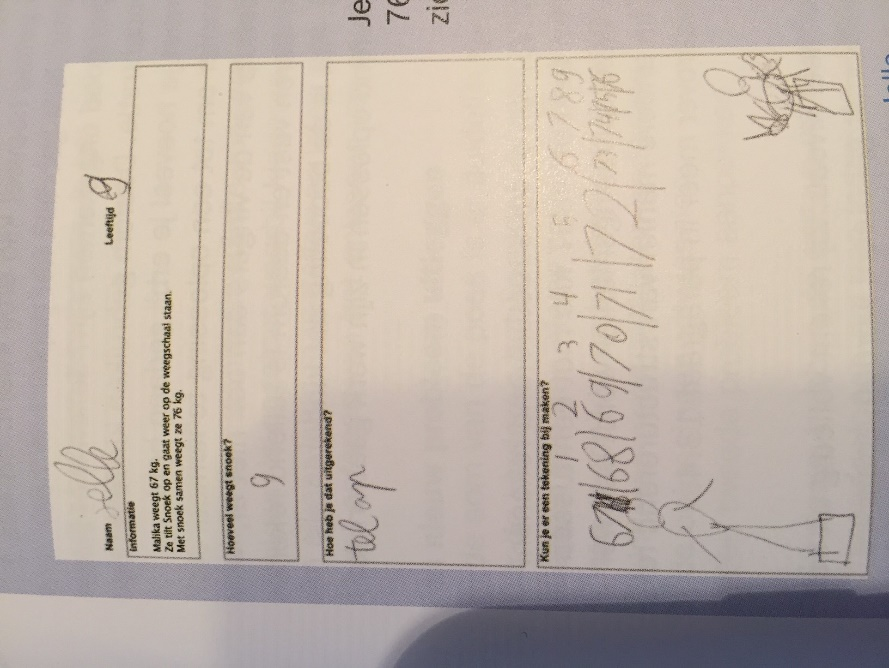 Je
76
zie
Naam jelle Leeftijd 9
Informatie
Malika weegt 67 kg.
Ze tilt Snoek op en gaat weer op de weegschaal staan.
Met snoek samen weegt ze 76 kg.
Hoeveel weegt snoek?
9
Hoe heb je dat uitgerekend?
tel op
Kun je er een tekening bij maken?
1 2 3 4 5 6 7 8 9
67/68/69/70/71/72/73/74/75/76
Jelle